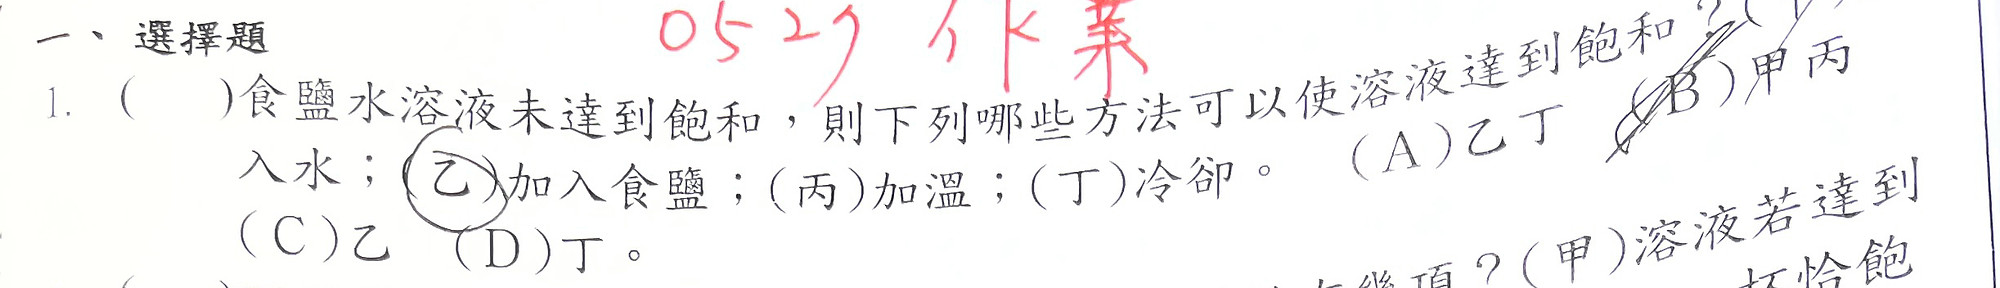 0529 作業
一、選擇題
1. ( )食鹽水溶液未達到飽和，則下列哪些方法可以使溶液達到飽和？(
入水；(乙)加入食鹽；(丙)加溫；(丁)冷卻。 (A)乙丁 (B)甲丙
(C)乙 (D)丁。
幾項？(甲)溶液若達到
杯恰飽